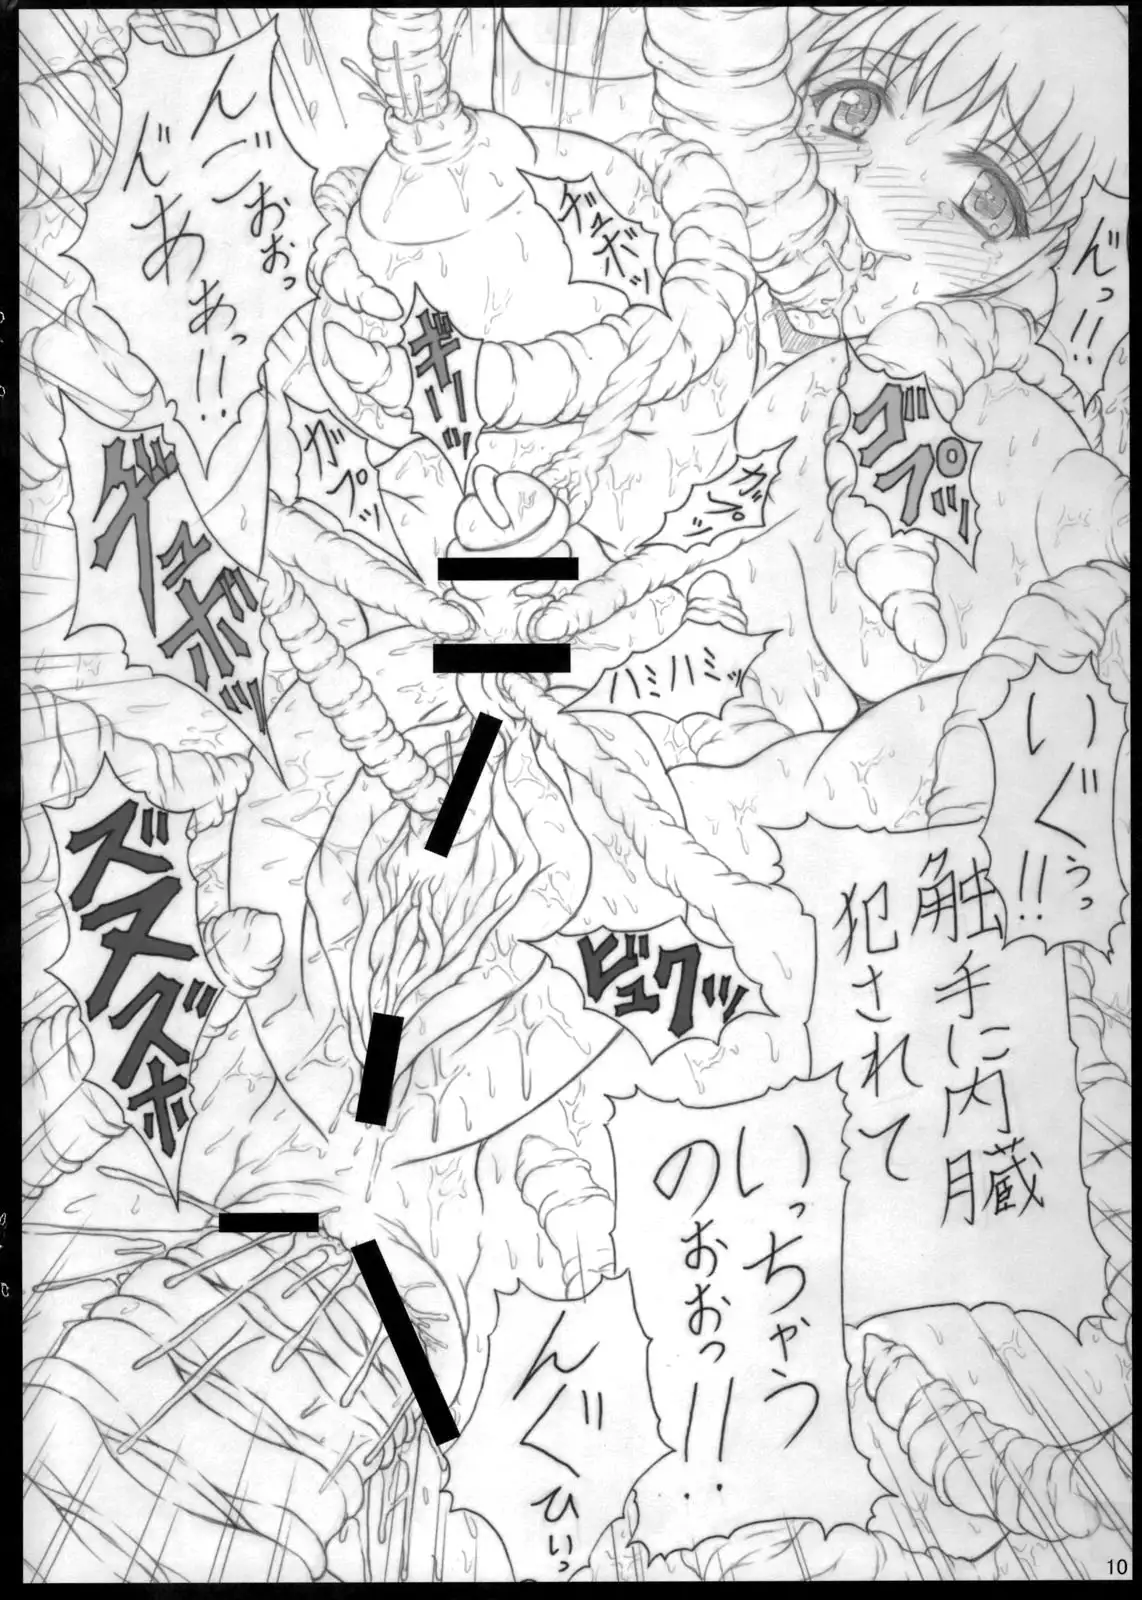 んっ!!
ゴプッ
いぐぅっ!!
触手に内臓
犯されて
いっちゃう
のおおっ!!
デュボッ
ギリッ
ガプッ
ガプッ
ハミハミッ
ビュクッ
んごおおっ
んああっ!!
デュボッ
ズヌズボ
んぐひいっ
10